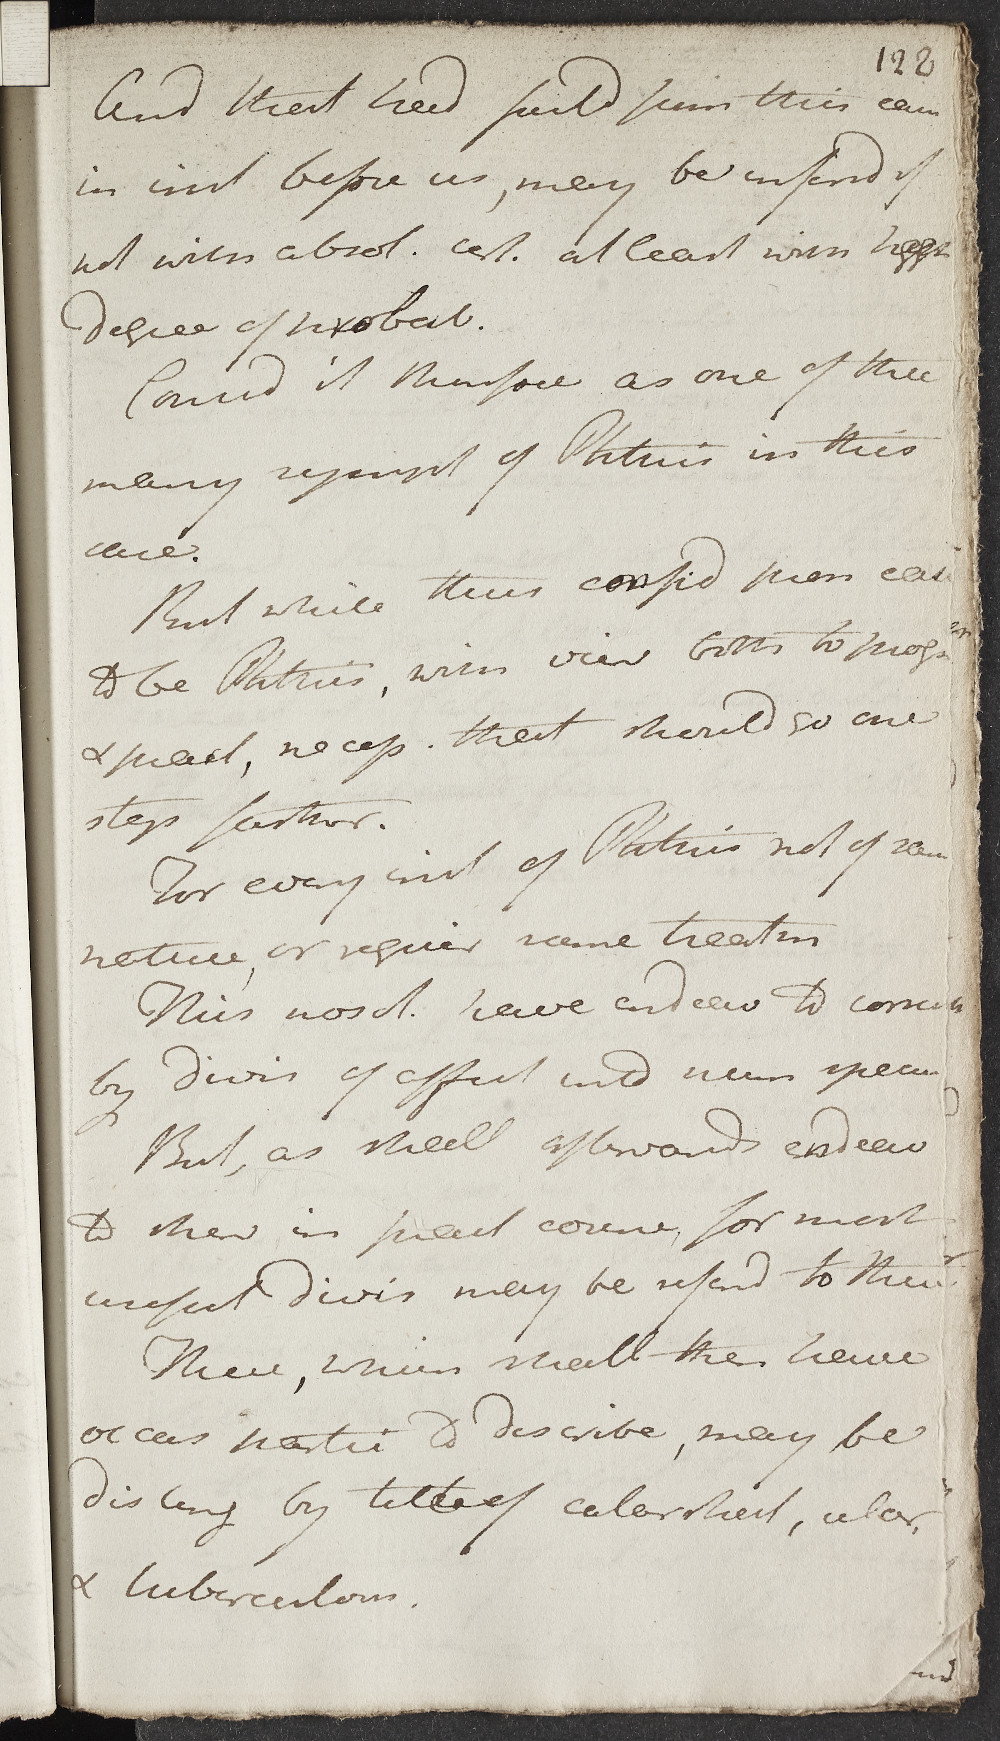 122
And that had from this
in inst before us, may be inferrd if
not with absol. cert. at least with high
degree of probab.
Consid it therefore as one of the
many sympt of Phthis in this
case.
But while thus consid pres case
to be Phthis, with view both to progn
& pract, necess. that should go one
step farther.
For every inst of Phthis not of sam
nature, or requir same treatm
This nosol. have endeav to
by divis of affect into num specie
But, as shall afterwards endeav
to shew in pract course, for most
useful divis may be referd to three
These, which shall then have
occas partic to describe, may be
disting by title of catarrhal, ulcer,
& tuberculous.